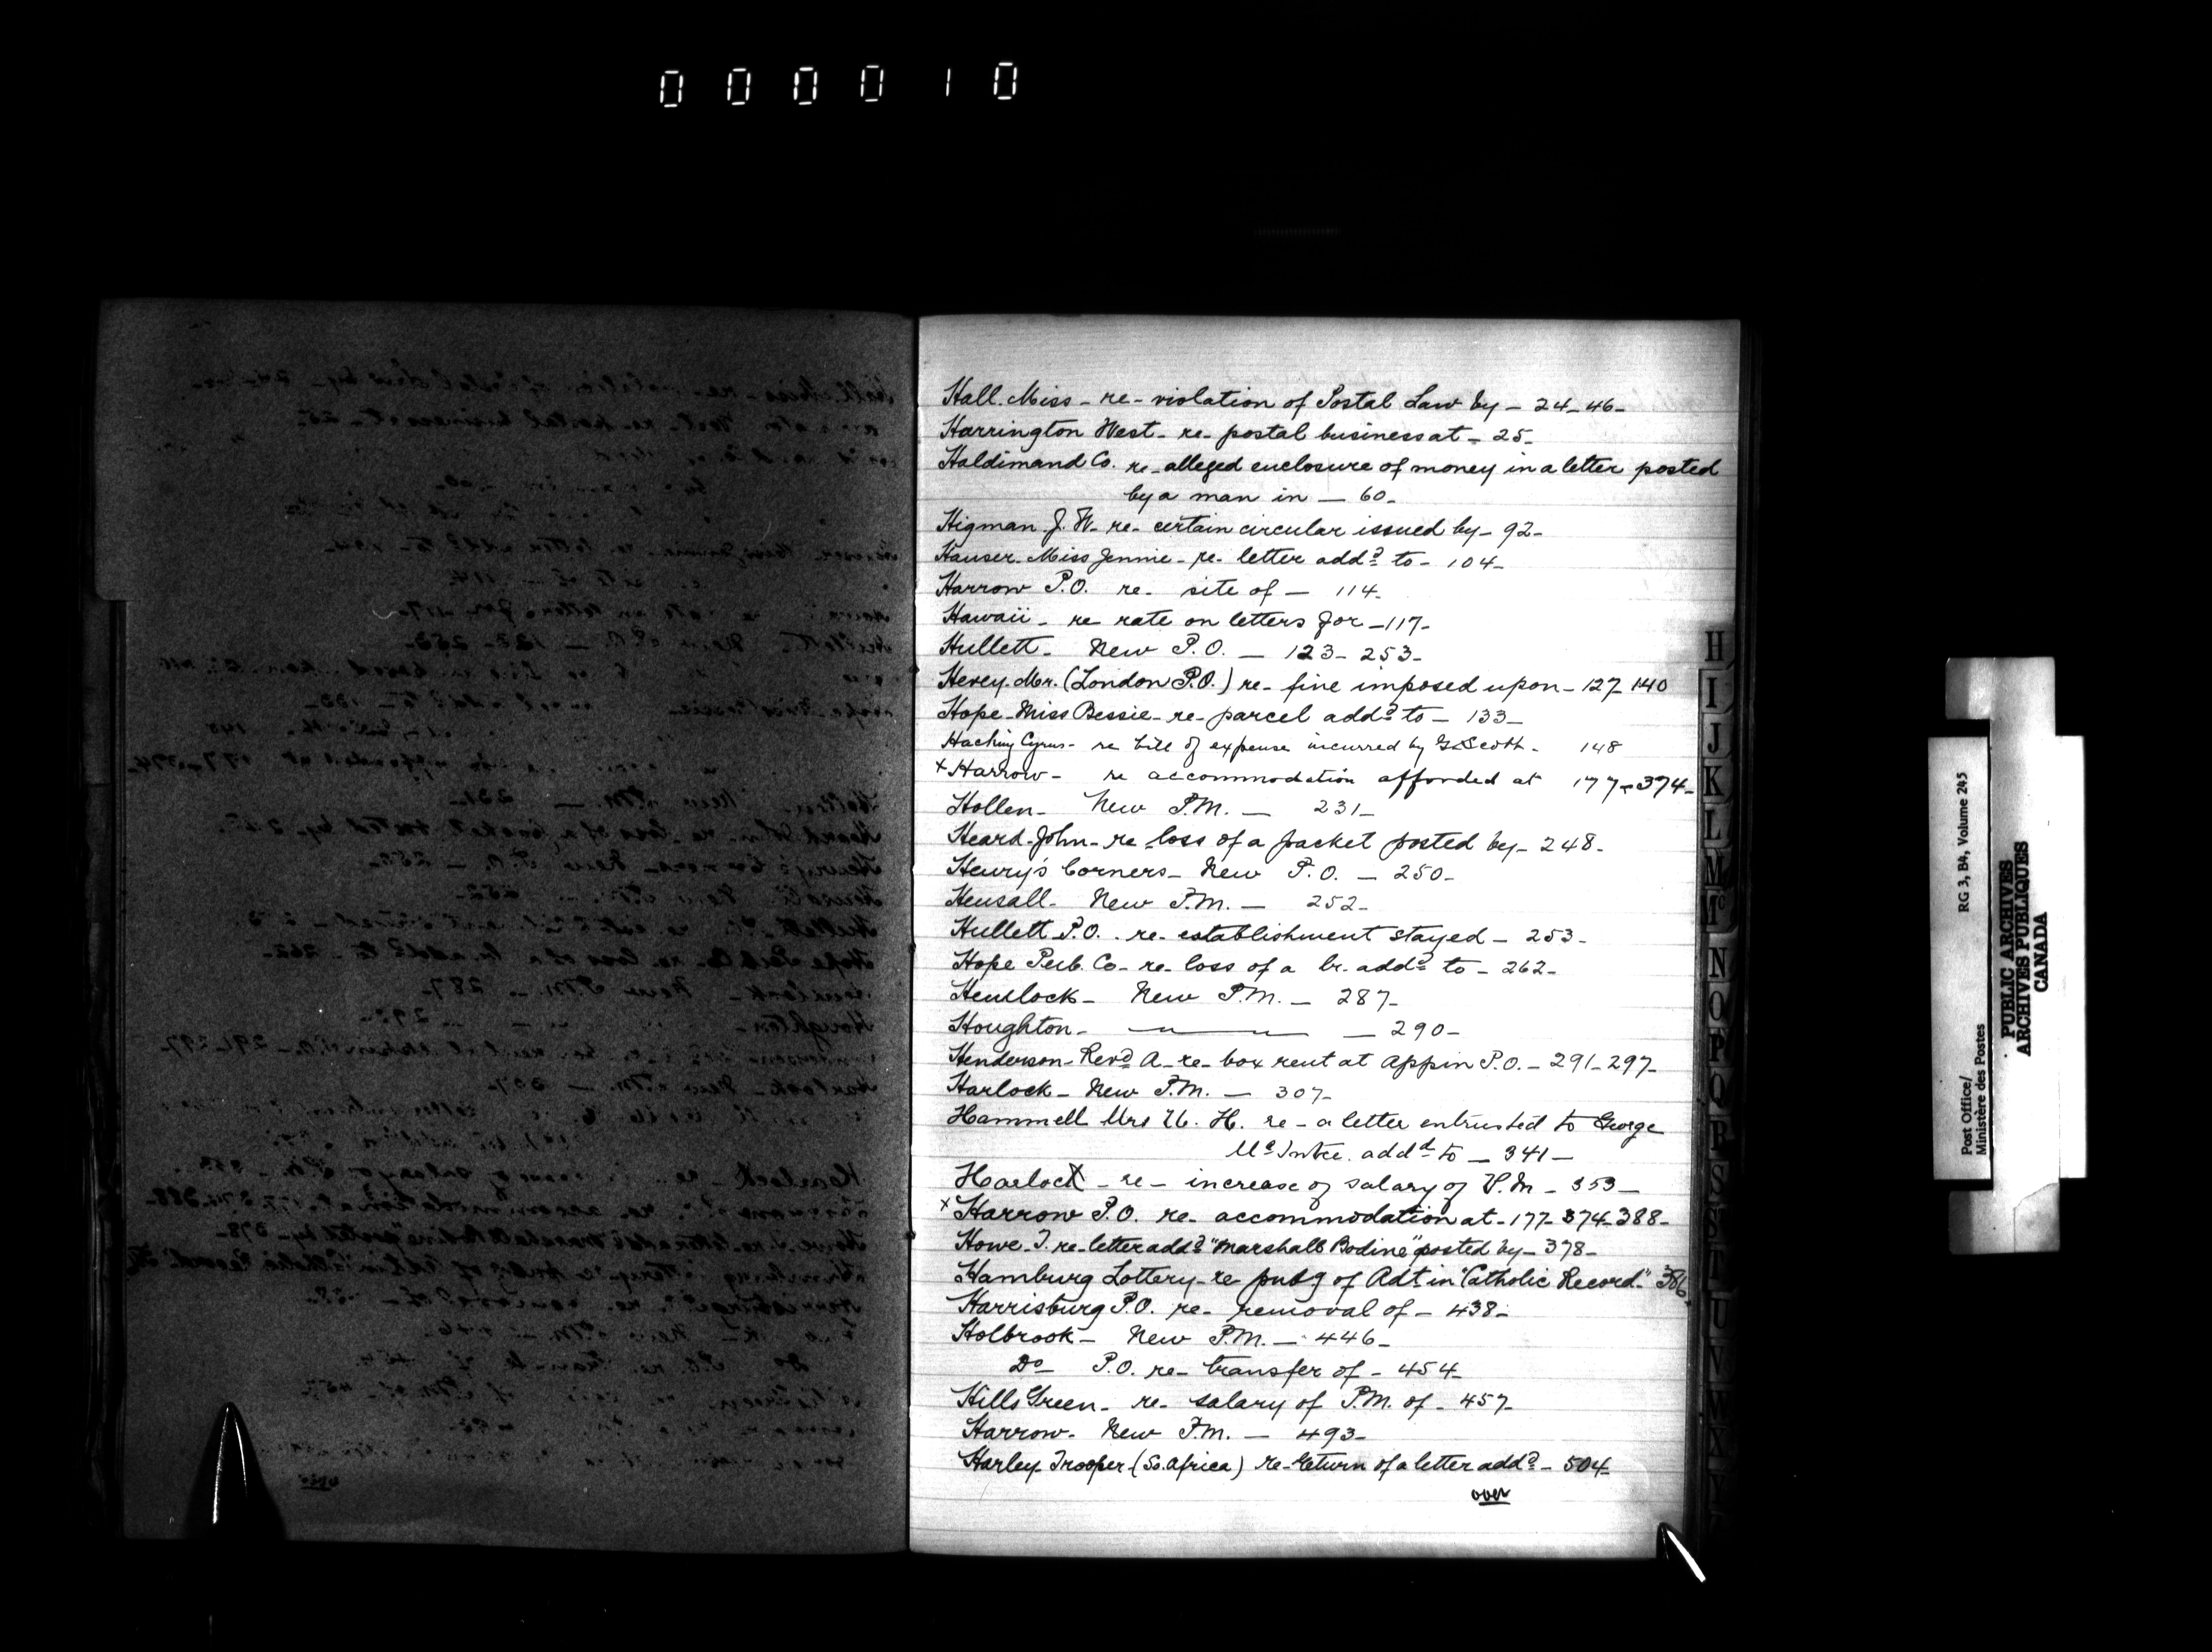 000010
Hall. Miss - re - violation of Postal Law by - 24 - 46 -
Harrington West - re - postal business at - 25 -
Haldimand Co. re - alleged enclosure of money in a letter posted
by a man in - 60 -
Higman J. W. - re - certain circular issued by - 92 -
Hauser. Miss Jennie - re - letter addd to - 104 -
Harrow P.O. re - site of - 114 -
Hawaii - re rate on letters for - 117 -
Hullett - New P.O. - 123 - 253 -
Hevey. Mr. (London P.O.) re - fine imposed upon - 127 - 140
Hope - Miss Bessie - re - parcel addd to - 133 -
Cyrus - re bill of expense incurred by G. Scott - 148
x Harrow - re accommodation afforded at 177 - 374 -
Hollen - New P.M. - 231 -
Heard - John - re - loss of a packet posted by - 248 -
Henry's Corners - New P.O. - 250 -
Hensall - New P.M. - 252 -
Hullett P.O. - re - establishment stayed - 253 -
Hope Pub. Co - re - loss of a lr. addd to - 262 -
Hemlock - New P.M. - 287 -
Houghton - " " - 290 -
Henderson - Revd A - re - box rent at Appin P.O. - 291 - 297 -
Harlock - New P.M. - 307 -
Hammell Mrs W. H. re - a letter entrusted to George
addd to - 341 -
Harlock - re - increase of salary of P.M - 353 -
x Harrow P.O. re - accommodation at - 177 - 374 - 388 -
Howe - J. re - letter addd "Marshall Bodine" posted by - 378 -
Hamburg Lottery - re pubg of Adt in "Catholic Record" - 386 -
Harrisburg P.O. re - removal of - 438 -
Holbrook - New P.M. - 446 -
Do P.O. re - transfer of - 454 -
Hills Green - re - salary of P.M. of - 457 -
Harrow - New P.M. - 493 -
Harley - Trooper - (So. Africa) re - return of a letter addd - 504 -
over
H
I
J
K
L
M
Mc
N
O
P
Q
R
S
T
U
V
W
X
Y
Post Office/
Ministère des Postes
RG 3, B4, Volume 245
PUBLIC ARCHIVES
ARCHIVES PUBLIQUES
CANADA